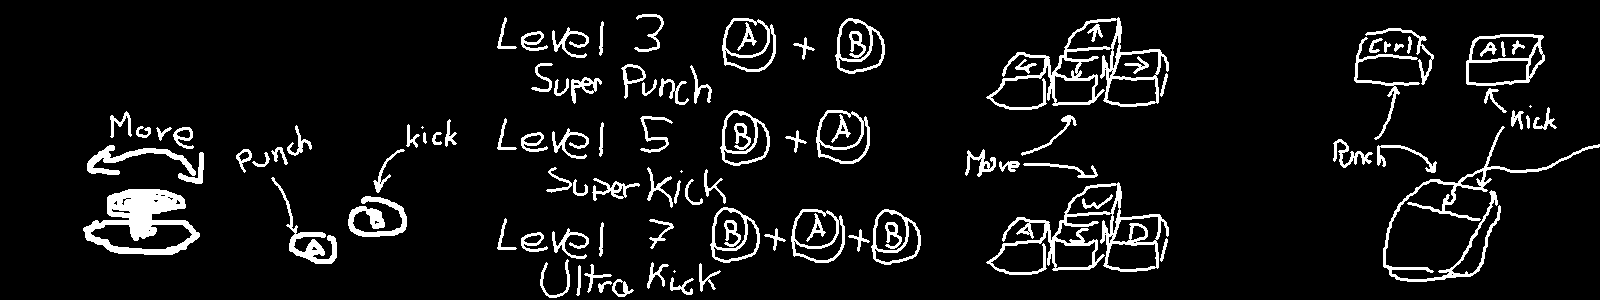 Move
Punch
kick
A
B
Level 3 A + B
Super Punch
Level 5 B + A
Super Kick
Level 7 B + A + B
Ultra Kick
↑
← ↓ →
Move
W
A S D
Ctrl Alt
Punch
Kick